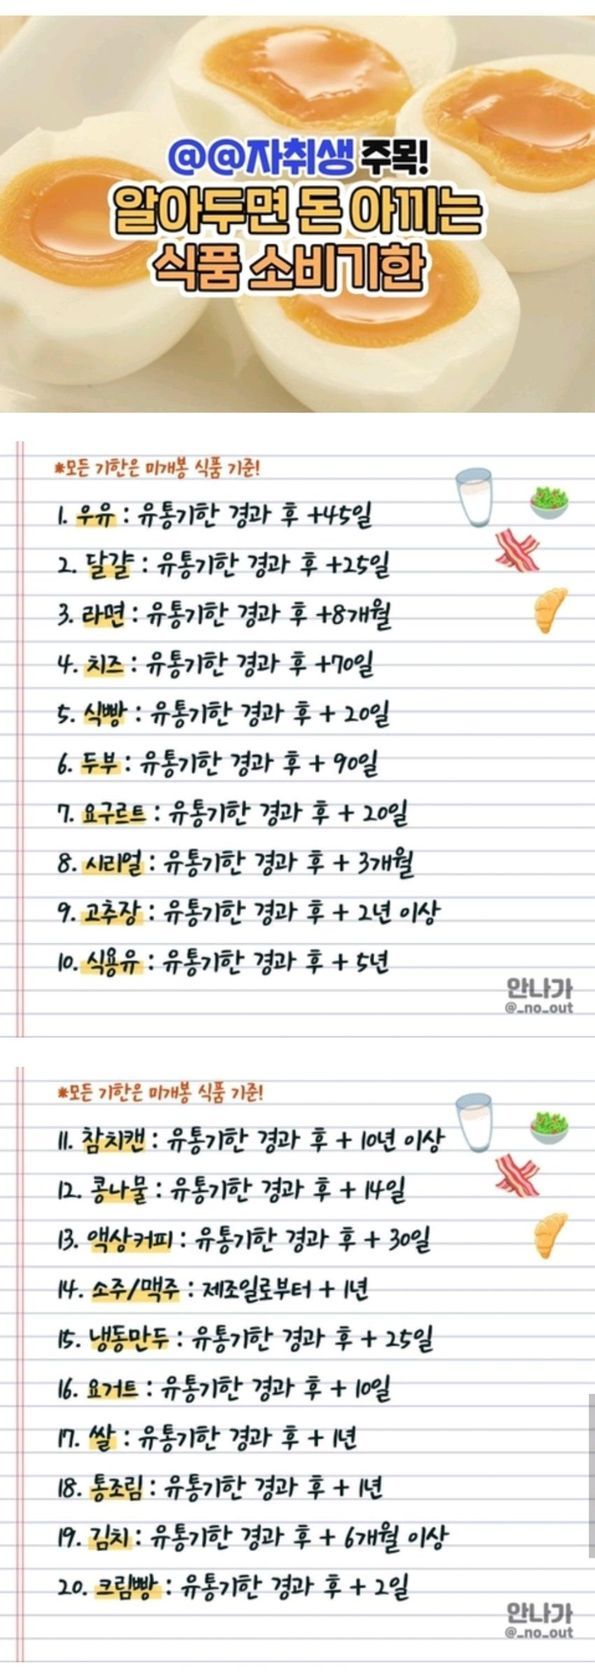 @@자취생 주목!
알아두면 돈 아끼는
식품 소비기한
*모든 기한은 미개봉 식품 기준!
1. 우유 : 유통기한 경과 후 +45일
2. 달걀 : 유통기한 경과 후 +25일
3. 라면 : 유통기한 경과 후 +8개월
4. 치즈 : 유통기한 경과 후 +70일
5. 식빵 : 유통기한 경과 후 + 20일
6. 두부 : 유통기한 경과 후 + 90일
7. 요구르트 : 유통기한 경과 후 + 20일
8. 시리얼 : 유통기한 경과 후 + 3개월
9. 고추장 : 유통기한 경과 후 + 2년 이상
10. 식용유 : 유통기한 경과 후 + 5년
안나가
@_no_out
*모든 기한은 미개봉 식품 기준!
11. 참치캔 : 유통기한 경과 후 + 10년 이상
12. 콩나물 : 유통기한 경과 후 + 14일
13. 액상커피 : 유통기한 경과 후 + 30일
14. 소주/맥주 : 제조일로부터 + 1년
15. 냉동만두 : 유통기한 경과 후 + 25일
16. 요거트 : 유통기한 경과 후 + 10일
17. 쌀 : 유통기한 경과 후 + 1년
18. 통조림 : 유통기한 경과 후 + 1년
19. 김치 : 유통기한 경과 후 + 6개월 이상
20. 크림빵 : 유통기한 경과 후 + 2일
안나가
@_no_out